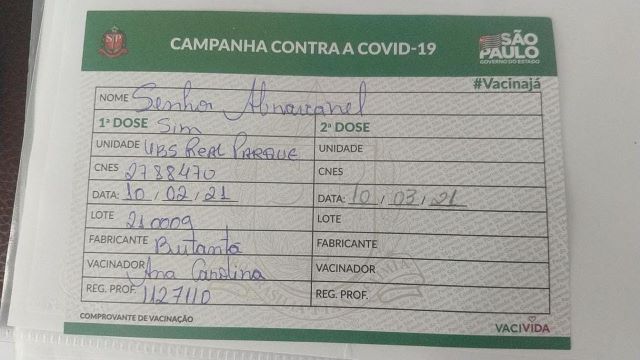 CAMPANHA CONTRA A COVID-19
SÃO PAULO
GOVERNO DO ESTADO
#Vacinajá
NOME Senhor
1ª DOSE Sim
UNIDADE UBS REAL PARQUE
CNES 2788470
DATA: 10/02/21
LOTE 210009
FABRICANTE Butantã
VACINADOR Ana Carolina
REG. PROF. 1127110
2ª DOSE
UNIDADE
CNES
DATA: 10/03/21
LOTE
FABRICANTE
VACINADOR
REG. PROF.
COMPROVANTE DE VACINAÇÃO
VACIVIDA